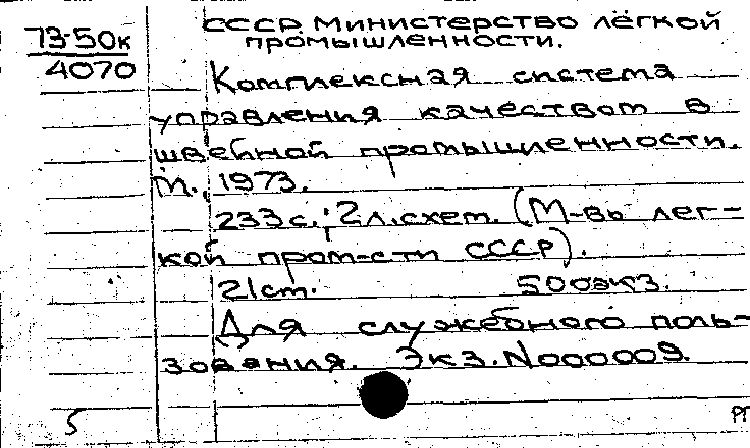 73-50к
4070
СССР Министерство лёгкой
промышленности.
Комплексная система
управления качеством в
швейной промышленности.
М., 1973.
233с.; 2л.схем. (М-во лег-
кой пром-сти СССР).
21см. 500экз.
Для служебного поль-
зования. Экз.N000009.
5
РГ